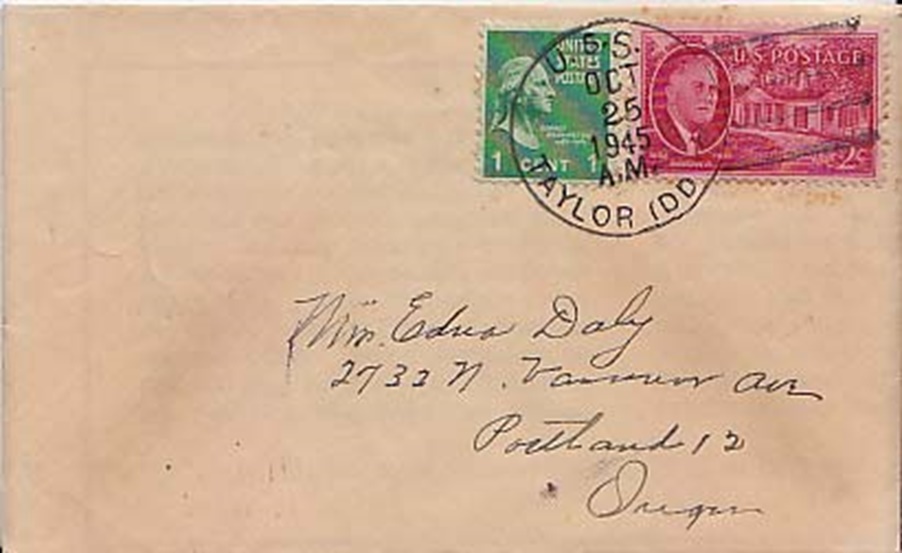 UNITED
STATES
POSTAGE
1 CENT 1
U.S. POSTAGE
2¢
U.S.S.
OCT
25
1945
A.M.
TAYLOR (DD
Mrs. Edna Daly
2732 N. Vancouver Ave
Portland 12
Oregon